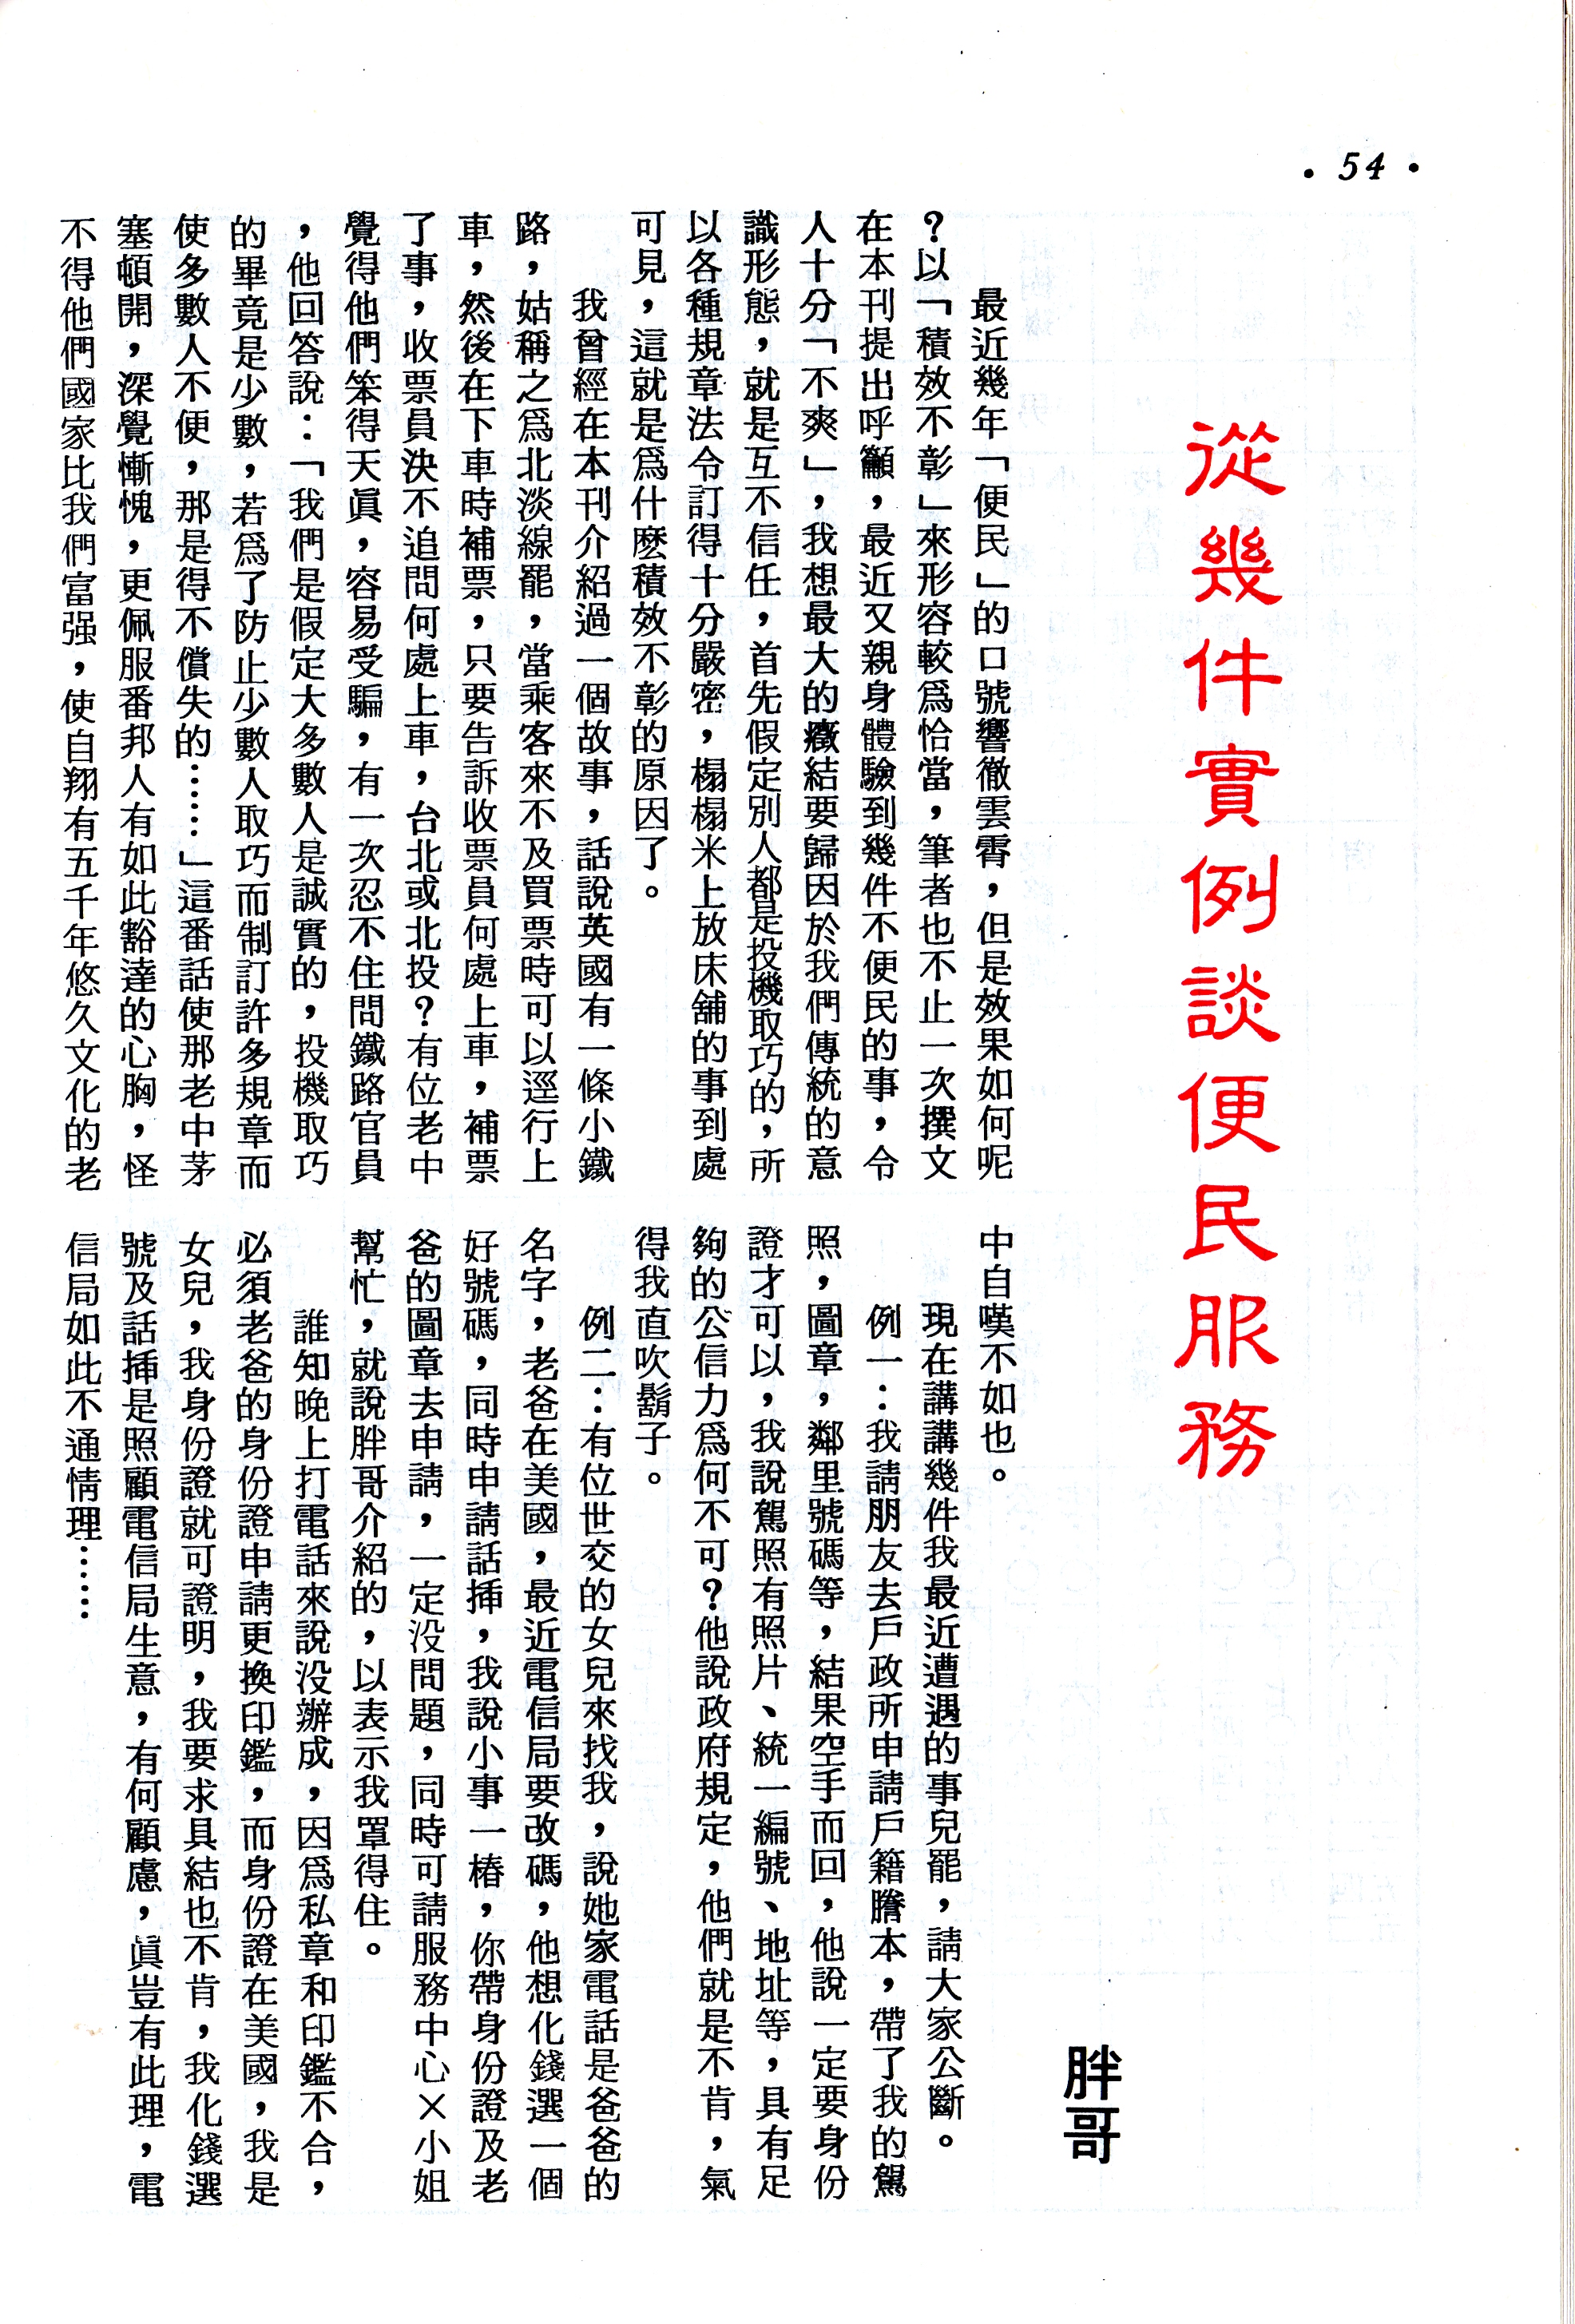 • 54 •
從幾件實例談便民服務
胖哥
最近幾年「便民」的口號響徹雲霄，但是效果如何呢
？以「積效不彰」來形容較爲恰當，筆者也不止一次撰文
在本刊提出呼籲，最近又親身體驗到幾件不便民的事，令
人十分「不爽」，我想最大的癥結要歸因於我們傳統的意
識形態，就是互不信任，首先假定別人都是投機取巧的，所
以各種規章法令訂得十分嚴密，榻榻米上放床舖的事到處
可見，這就是爲什麽積效不彰的原因了。
我曾經在本刊介紹過一個故事，話說英國有一條小鐵
路，姑稱之爲北淡線罷，當乘客來不及買票時可以逕行上
車，然後在下車時補票，只要告訴收票員何處上車，補票
了事，收票員決不追問何處上車，台北或北投？有位老中
覺得他們笨得天眞，容易受騙，有一次忍不住問鐵路官員
，他回答說：「我們是假定大多數人是誠實的，投機取巧
的畢竟是少數，若爲了防止少數人取巧而制訂許多規章而
使多數人不便，那是得不償失的……」這番話使那老中茅
塞頓開，深覺慚愧，更佩服番邦人有如此豁達的心胸，怪
不得他們國家比我們富强，使自翔有五千年悠久文化的老
中自嘆不如也。
現在講講幾件我最近遭遇的事兒罷，請大家公斷。
例一：我請朋友去戶政所申請戶籍謄本，帶了我的駕
照，圖章，鄰里號碼等，結果空手而回，他說一定要身份
證才可以，我說駕照有照片、統一編號、地址等，具有足
夠的公信力爲何不可？他說政府規定，他們就是不肯，氣
得我直吹鬍子。
例二：有位世交的女兒來找我，說她家電話是爸爸的
名字，老爸在美國，最近電信局要改碼，他想化錢選一個
好號碼，同時申請話揷，我說小事一樁，你帶身份證及老
爸的圖章去申請，一定没問題，同時可請服務中心×小姐
幫忙，就說胖哥介紹的，以表示我罩得住。
誰知晚上打電話來說没辦成，因爲私章和印鑑不合，
必須老爸的身份證申請更換印鑑，而身份證在美國，我是
女兒，我身份證就可證明，我要求具結也不肯，我化錢選
號及話揷是照顧電信局生意，有何顧慮，眞豈有此理，電
信局如此不通情理……